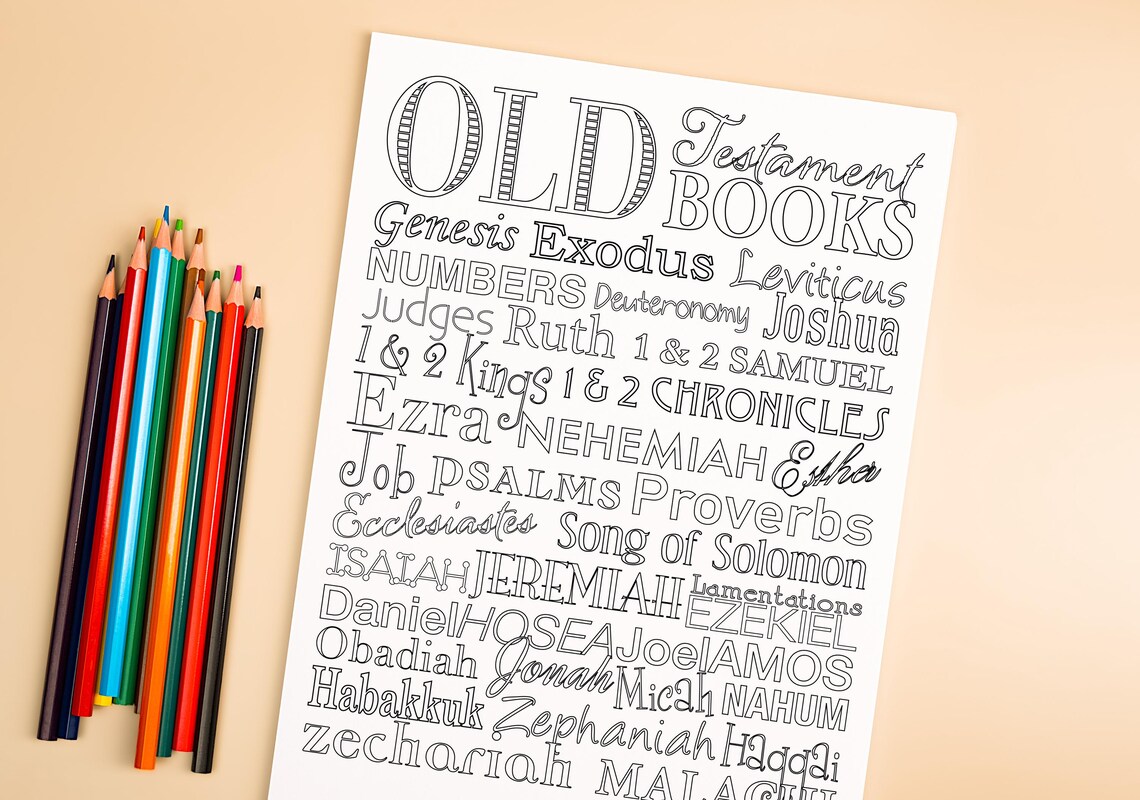 OLD Testament BOOKS
Genesis Exodus Leviticus
NUMBERS Deuteronomy Joshua
Judges Ruth 1 & 2 SAMUEL
1 & 2 Kings 1 & 2 CHRONICLES
Ezra NEHEMIAH Esther
Job PSALMS Proverbs
Ecclesiastes Song of Solomon
ISAIAH JEREMIAH Lamentations
EZEKIEL
Daniel HOSEA Joel AMOS
Obadiah Jonah Micah NAHUM
Habakkuk Zephaniah Haggai
zechariah MALACHI